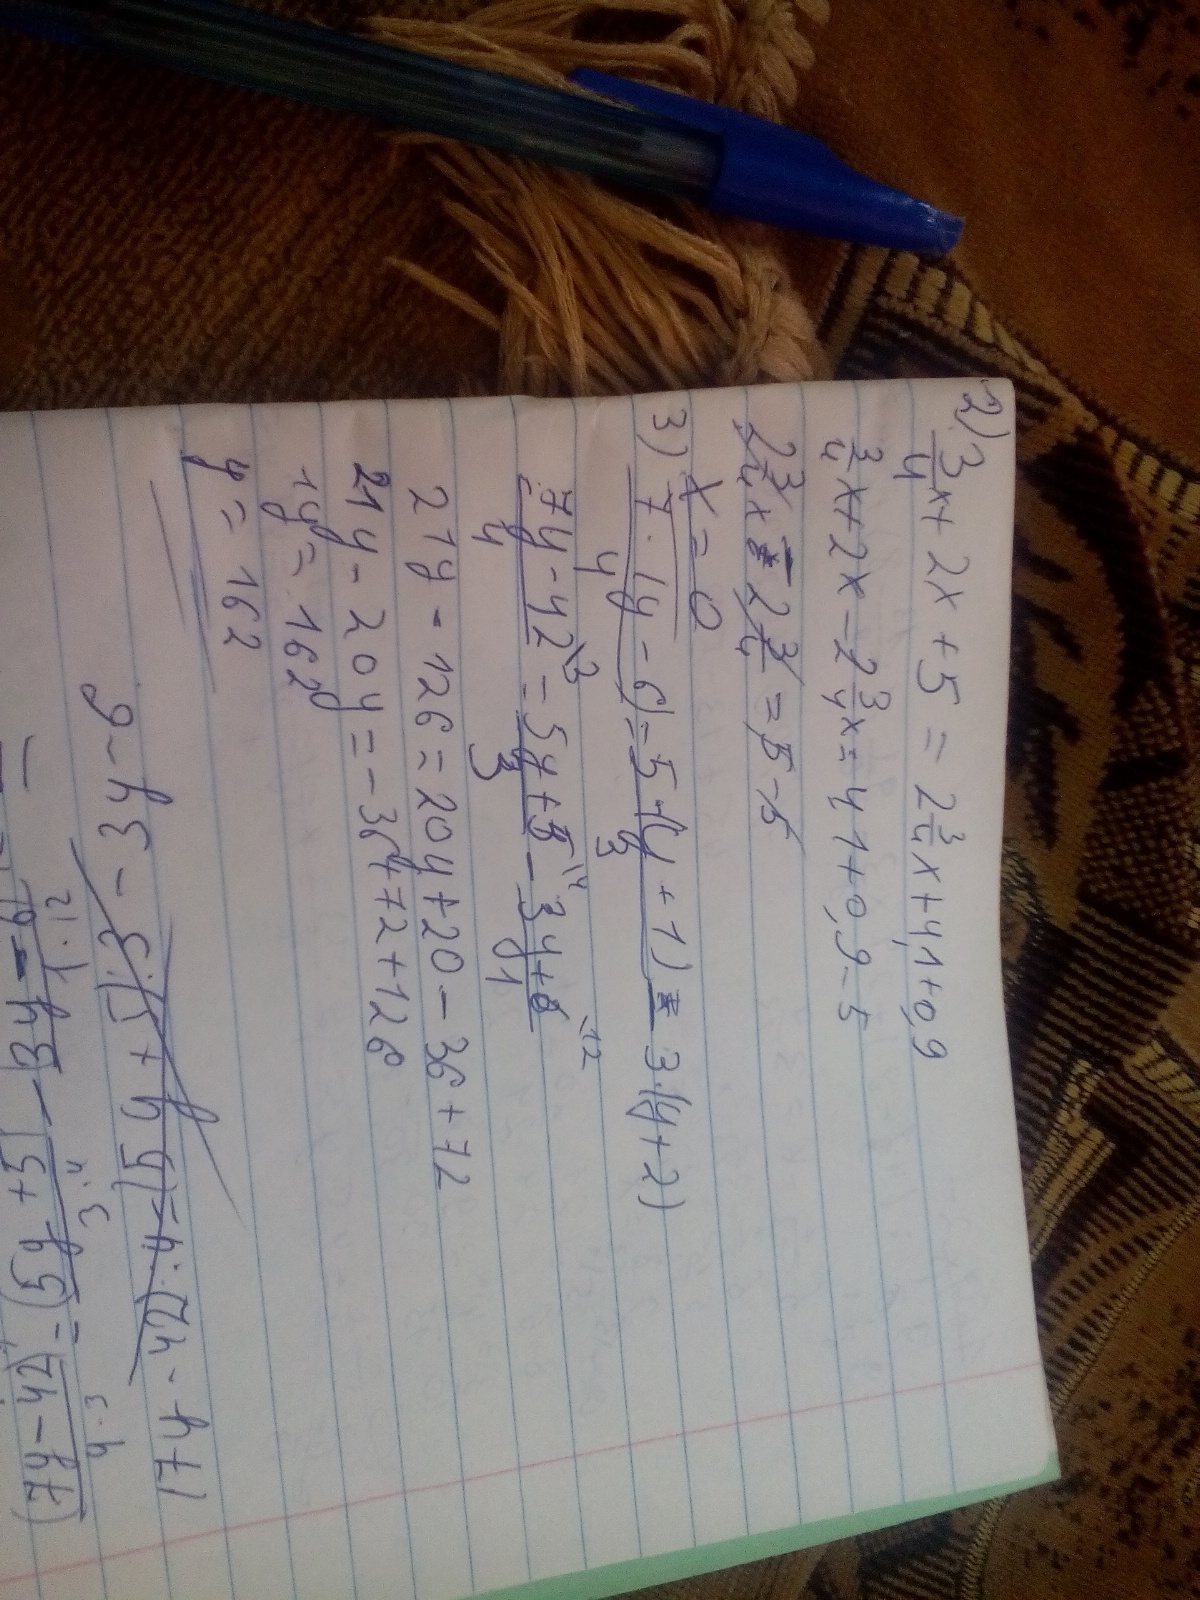 2) 3/4 x + 2x + 5 = 2 3/4 x + 4,1 + 0,9
3/4 x + 2x - 2 3/4 x = 4,1 + 0,9 - 5
2 3/4 x - 2 3/4 = 5 - 5
x = 0
3) 7·(y - 6)/4 = 5·(y + 1)/3 - 3·(y + 2)
7y - 42/4 \3 = 5y + 5/3 \4 - 3y + 6/1 \12
21y - 126 = 20y + 20 - 36 + 72
21y - 20y = - 36 + 72 + 126
1y = 162
y = 162